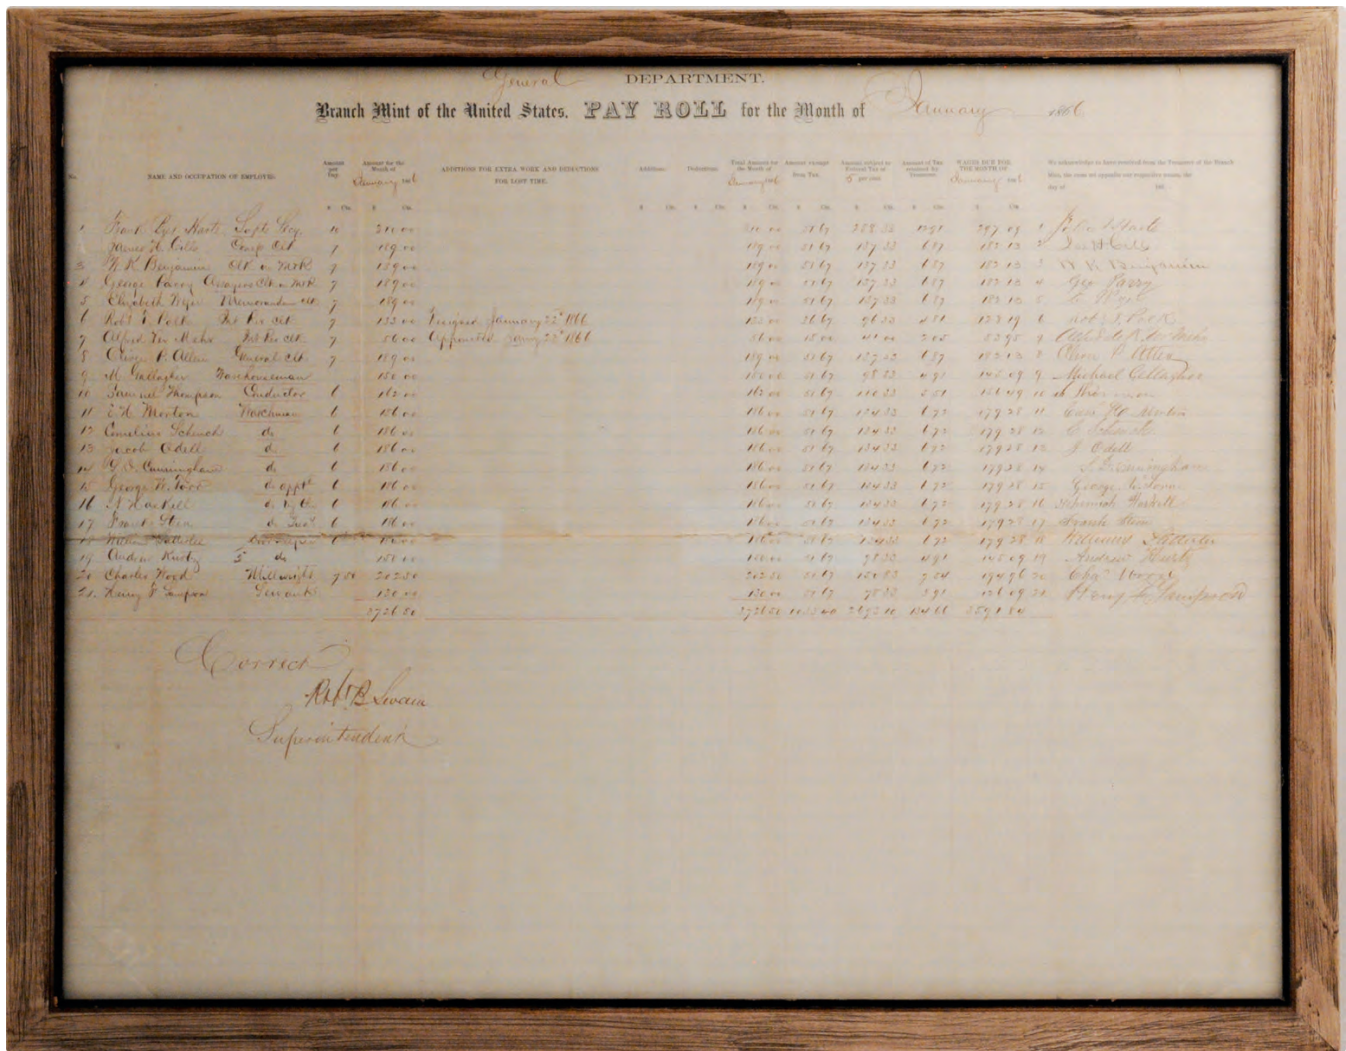 General DEPARTMENT.
Branch Mint of the United States. PAY ROLL for the Month of January 1866
No. NAME AND OCCUPATION OF EMPLOYÉS. Amount per Day. Amount for the Month of January 1866 ADDITIONS FOR EXTRA WORK AND DEDUCTIONS FOR LOST TIME. Additions. Deductions. Total Amount for the Month of January 1866 Amount exempt from Tax. Amount subject to Federal Tax of 5 per cent. Amount of Tax retained by Treasurer. WAGES DUE FOR THE MONTH OF January 1866 We acknowledge to have received from the Treasurer of the Branch Mint, the sums set opposite our respective names, the day of 186
$ Cts. $ Cts. $ Cts. $ Cts. $ Cts. $ Cts. $ Cts. $ Cts. $ Cts.
1 Frank Harte 10 310 00 310 00 51 67 258 33 12 91 297 09 1
James H. Cills Comp Clk 7 189 00 189 00 51 67 137 33 6 87 182 13 2
3 W. K. Benjamin Clk 7 189 00 189 00 51 67 137 33 6 87 182 13 3 W K Benjamin
4 George Parry Assayers Clk 7 189 00 189 00 51 67 137 33 6 87 182 13 4 Geo Parry
5 Elizabeth Memorandum Clk 7 189 00 189 00 51 67 137 33 6 87 182 13 5
6 Robt Polk Clk 7 133 00 Resigned January 22d 1866 133 00 36 67 96 33 4 81 128 19 6 Polk
7 Alfred Ver Mehr Clk 7 56 00 Appointed Jany 23d 1866 56 00 15 00 41 00 2 05 53 95 7
8 Oliver P. Allen General Clk 7 189 00 189 00 51 67 137 33 6 87 182 13 8 Oliver P. Allen
9 M. Gallagher Warehouseman 150 00 150 00 51 67 98 33 4 91 145 09 9 Michael Gallagher
10 Samuel Thompson Conductor 6 162 00 162 00 51 67 110 33 5 51 156 49 10
11 E H Morton Watchman 6 186 00 186 00 51 67 134 33 6 72 179 28 11
12 Cornelius Schenck do 6 186 00 186 00 51 67 134 33 6 72 179 28 12 C Schenck
13 Jacob Odell do 6 186 00 186 00 51 67 134 33 6 72 179 28 13 J Odell
14 Cunningham do 6 186 00 186 00 51 67 134 33 6 72 179 28 14 Cunningham
15 George W. do 6 186 00 186 00 51 67 134 33 6 72 179 28 15 George W.
16 Haskell do 6 186 00 186 00 51 67 134 33 6 72 179 28 16 Jeremiah Haskell
17 Frank do 6 186 00 186 00 51 67 134 33 6 72 179 28 17 Frank
18 William Satterlee Doorkeeper 6 186 00 186 00 51 67 134 33 6 72 179 28 18 William Satterlee
19 Andrew Kurtz do 150 00 150 00 51 67 98 33 4 91 145 09 19 Andrew Kurtz
20 Charles Wood Millwright 7 50 202 50 202 50 51 67 150 83 7 54 194 96 20 Chas Wood
21. Henry F Sampson Servant 130 00 130 00 51 67 78 33 3 91 126 09 21 Henry F Sampson
3726 50 3726 50 1033 40 2693 10 134 66 3591 84
Correct
Robt B Swain
Superintendent